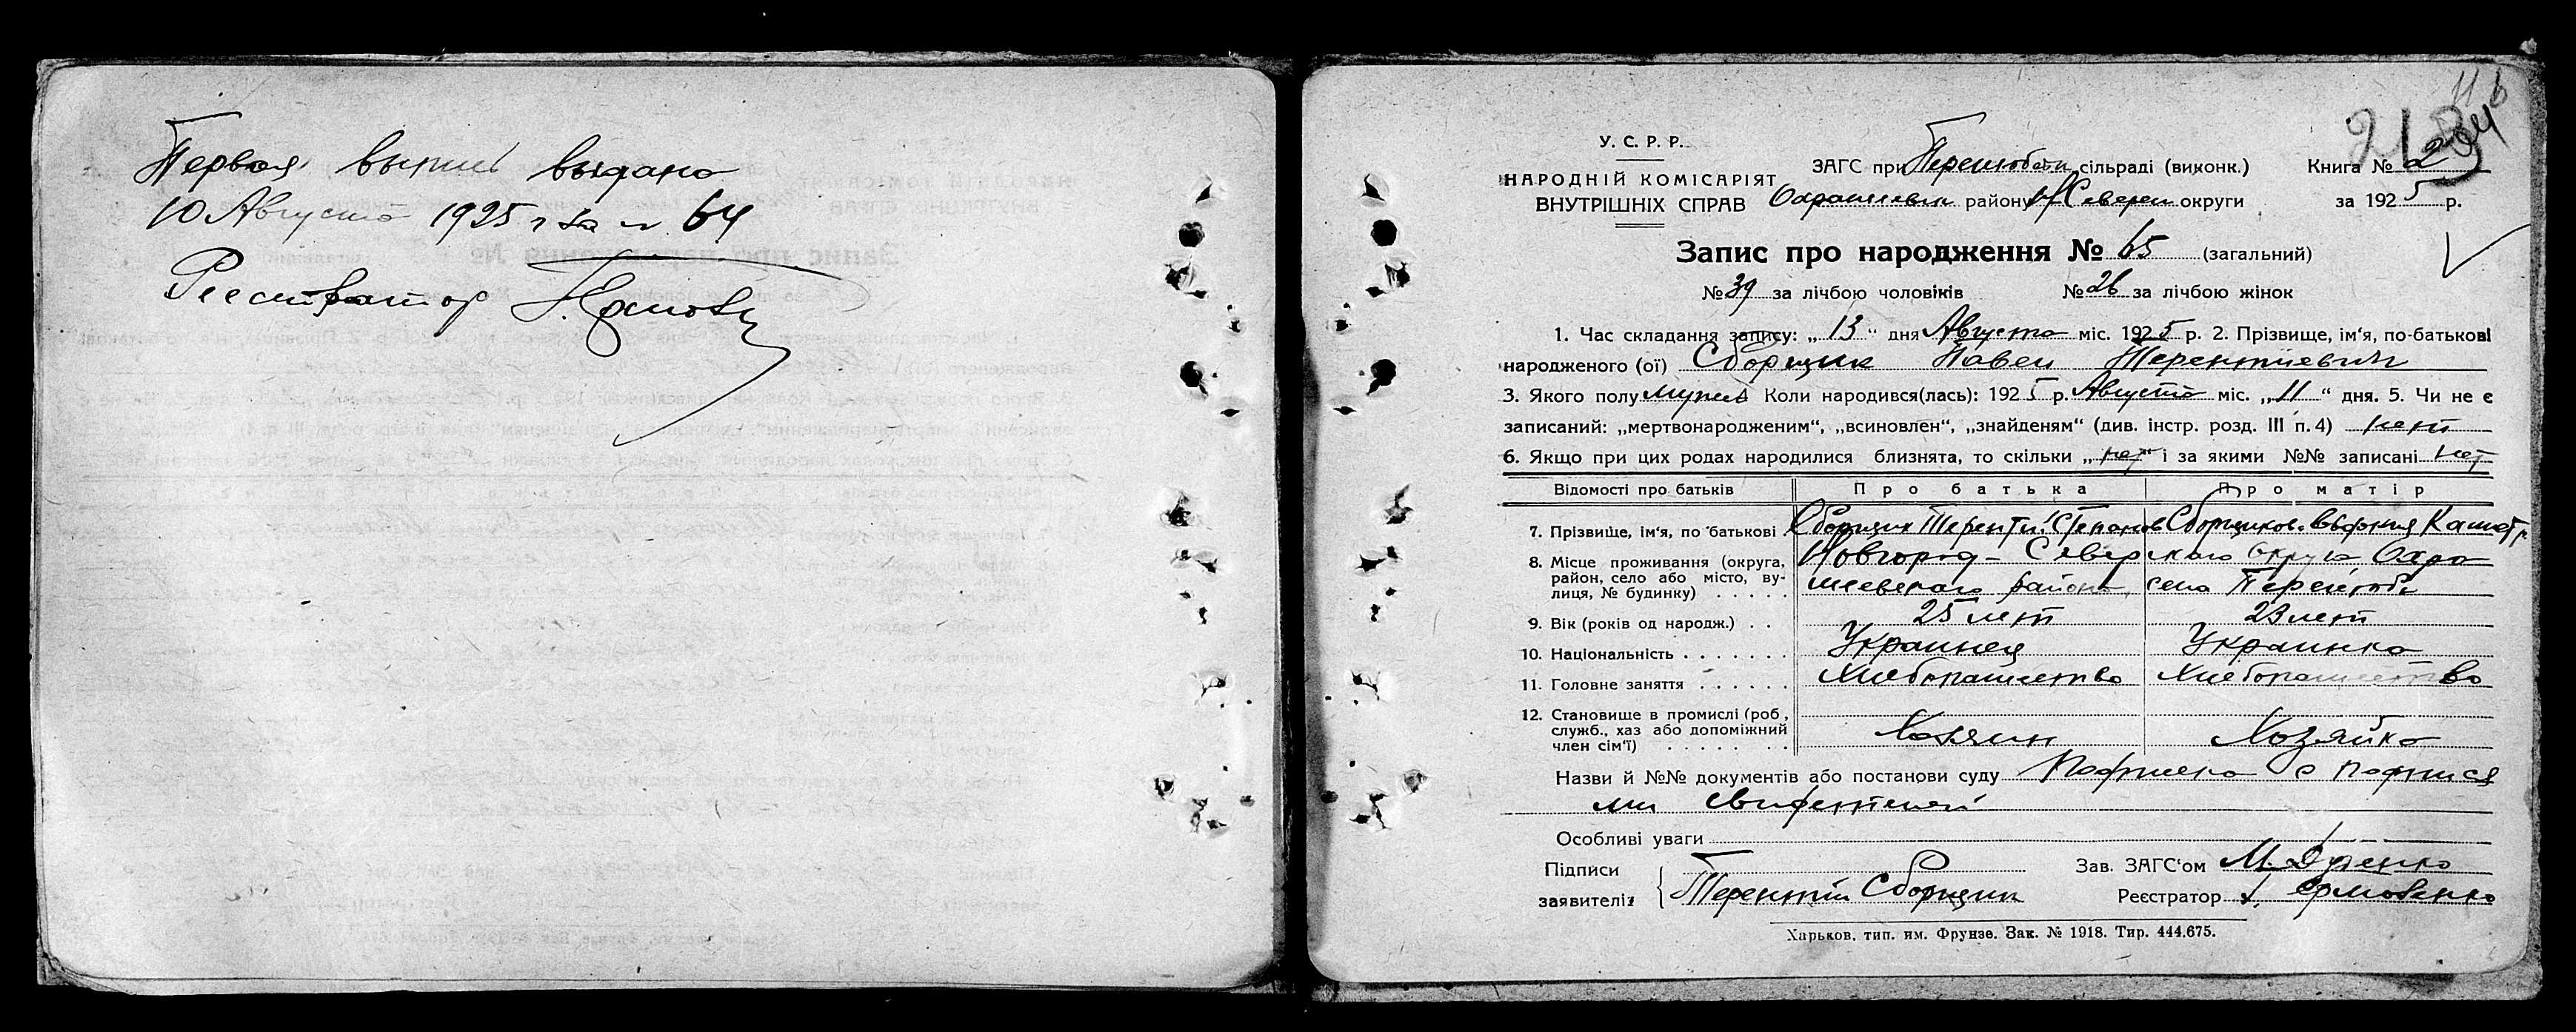 Первая выпись выдана
10 Августа 1925 г за № 64
Реестратор
116
У. С. Р. Р.
НАРОДНІЙ КОМІСАРІЯТ
ВНУТРІШНІХ СПРАВ
ЗАГС при Перелюбськ сільраді (виконк.)
району Н/Северск округи
Книга № 2
за 1925 р.
Запис про народження № 65 (загальний)
№ 39 за лічбою чоловіків № 26 за лічбою жінок
1. Час складання запису: „13“ дня Августа міс. 1925 р. 2. Прізвище, ім'я, по-батькові
народженого (ої) Сборщик Павел Терентиевич
3. Якого полу мужск 4 Коли народився(лась): 1925 р. Августа міс. „11“ дня. 5. Чи не є
записаний: „мертвонародженим“, „всиновлен“, „знайденям“ (див. інстр. розд. III п. 4) нет
6. Якщо при цих родах народилися близнята, то скільки „нет“ і за якими №№ записані нет
Відомості про батьків Про батька Про матір
7. Прізвище, ім'я, по батькові Сборщик Терентий Степанов Сборщикова
8. Місце проживання (округа, район, село або місто, вулиця, № будинку) . . . . . Новгород-Северского округа Охра
шевского района, села Перелюбе
9. Вік (років од народж.) . . 25 лет 23 лет
10. Національність . . . . . . . Украинец Украинка
11. Головне заняття . . . . . . Хлебопашество Хлебопашество
12. Становище в промислі (роб., служб., хаз або допоміжний член сім'ї) . . . . . . . . Хозяин Хозяйка
Назви й №№ документів або постанови суду Подписка с подпися
ми свидетелей
Особливі уваги
Підписи
заявителів Терентий Сборщик
Зав. ЗАГС'ом
Реєстратор Ермоленко
Харьков, тип. им. Фрунзе. Зак. № 1918. Тир. 444.675.